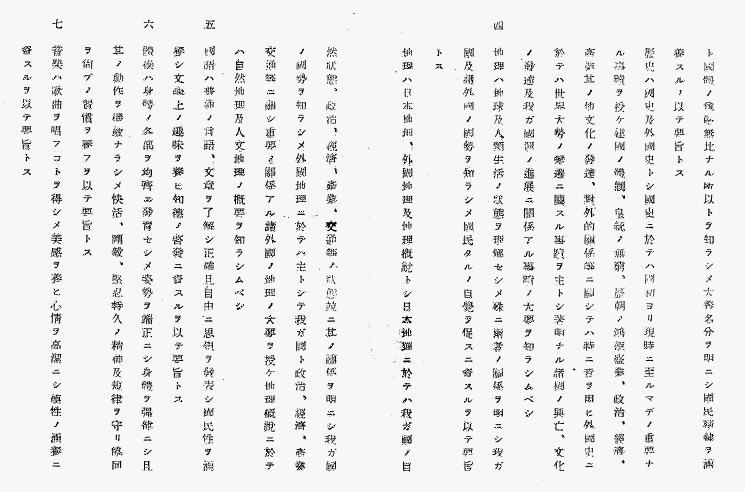 ト國體ノ優秀無比ナル所以トヲ知ラシメ大義名分ヲ明ニシ國民精神ヲ涵
養スルヲ以テ要旨トス
歷史ハ國史及外國史トシ國史ニ於テハ國初ヨリ現時ニ至ルマデノ重要ナ
ル事蹟ヲ授ケ建國ノ體制、皇統ノ無窮、歷朝ノ鴻業盛業、政治、經濟、
產業其ノ他文化ノ發達、對外的關係等ニ關シテハ特ニ意ヲ用ヒ外國史ニ
於テハ世界大勢ノ變遷ニ關スル事蹟ヲ主トシ著明ナル諸國ノ興亡、文化
ノ發達及我ガ國運ノ進展ニ關係アル事蹟ノ大要ヲ知ラシムベシ
四 地理ハ地球及人類生活ノ狀態ヲ理解セシメ殊ニ兩者ノ關係ヲ明ニシ我ガ
國及諸外國ノ國勢ヲ知ラシメ國民タルノ自覺ヲ促スニ資スルヲ以テ要旨
トス
地理ハ日本地理、外國地理及地理槪說トシ日本地理ニ於テハ我ガ國ノ自
然狀態、政治、經濟、產業、交通等ノ狀態竝ニ其ノ關係ヲ明ニシ我ガ國
ノ國勢ヲ知ラシメ外國地理ニ於テハ主トシテ我ガ國ト政治、經濟、產業
交通等ニ關シ重要ノ關係アル諸外國ノ地理ノ大要ヲ授ケ地理槪說ニ於テ
ハ自然地理及人文地理ノ槪要ヲ知ラシムベシ
五 國語ハ普通ノ言語、文章ヲ了解シ正確且自由ニ思想ヲ發表シ國民性ヲ涵
養シ文學上ノ趣味ヲ養ヒ知德ノ啓發ニ資スルヲ以テ要旨トス
六 體操ハ身體ノ各部ヲ均齊ニ發育セシメ姿勢ヲ端正ニシ身體ヲ强健ニシ且
其ノ動作ヲ機敏ナラシメ快活、剛毅、堅忍持久ノ精神及規律ヲ守リ協同
ヲ尙ブノ習慣ヲ養フヲ以テ要旨トス
七 音樂ハ歌曲ヲ唱フコトヲ得シメ美感ヲ養ヒ心情ヲ高潔ニシ德性ノ涵養ニ
資スルヲ以テ要旨トス